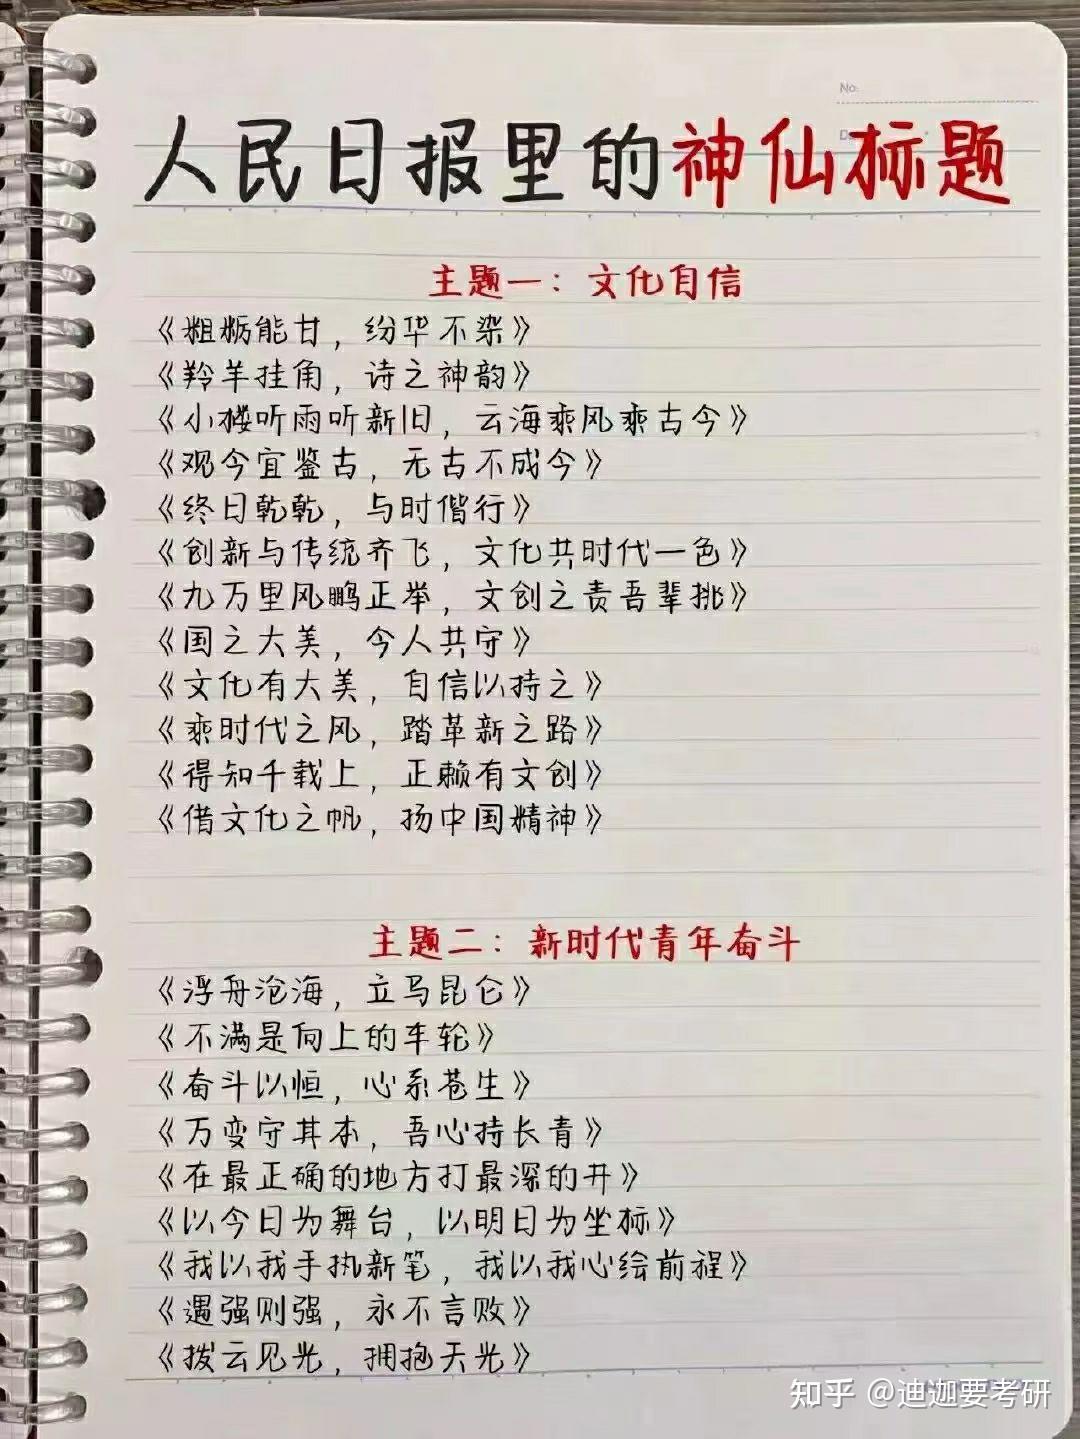 No.
人民日报里的神仙标题
主题一：文化自信
《粗粝能甘，纷华不染》
《羚羊挂角，诗之神韵》
《小楼听雨听新旧，云海乘风乘古今》
《观今宜鉴古，无古不成今》
《终日乾乾，与时偕行》
《创新与传统齐飞，文化共时代一色》
《九万里风鹏正举，文创之责吾辈挑》
《国之大美，今人共守》
《文化有大美，自信以持之》
《乘时代之风，踏革新之路》
《得知千载上，正赖有文创》
《借文化之帆，扬中国精神》
主题二：新时代青年奋斗
《浮舟沧海，立马昆仑》
《不满是向上的车轮》
《奋斗以恒，心系苍生》
《万变守其本，吾心持长青》
《在最正确的地方打最深的井》
《以今日为舞台，以明日为坐标》
《我以我手执新笔，我以我心绘前程》
《遇强则强，永不言败》
《拨云见光，拥抱天光》
知乎 @迪迦要考研